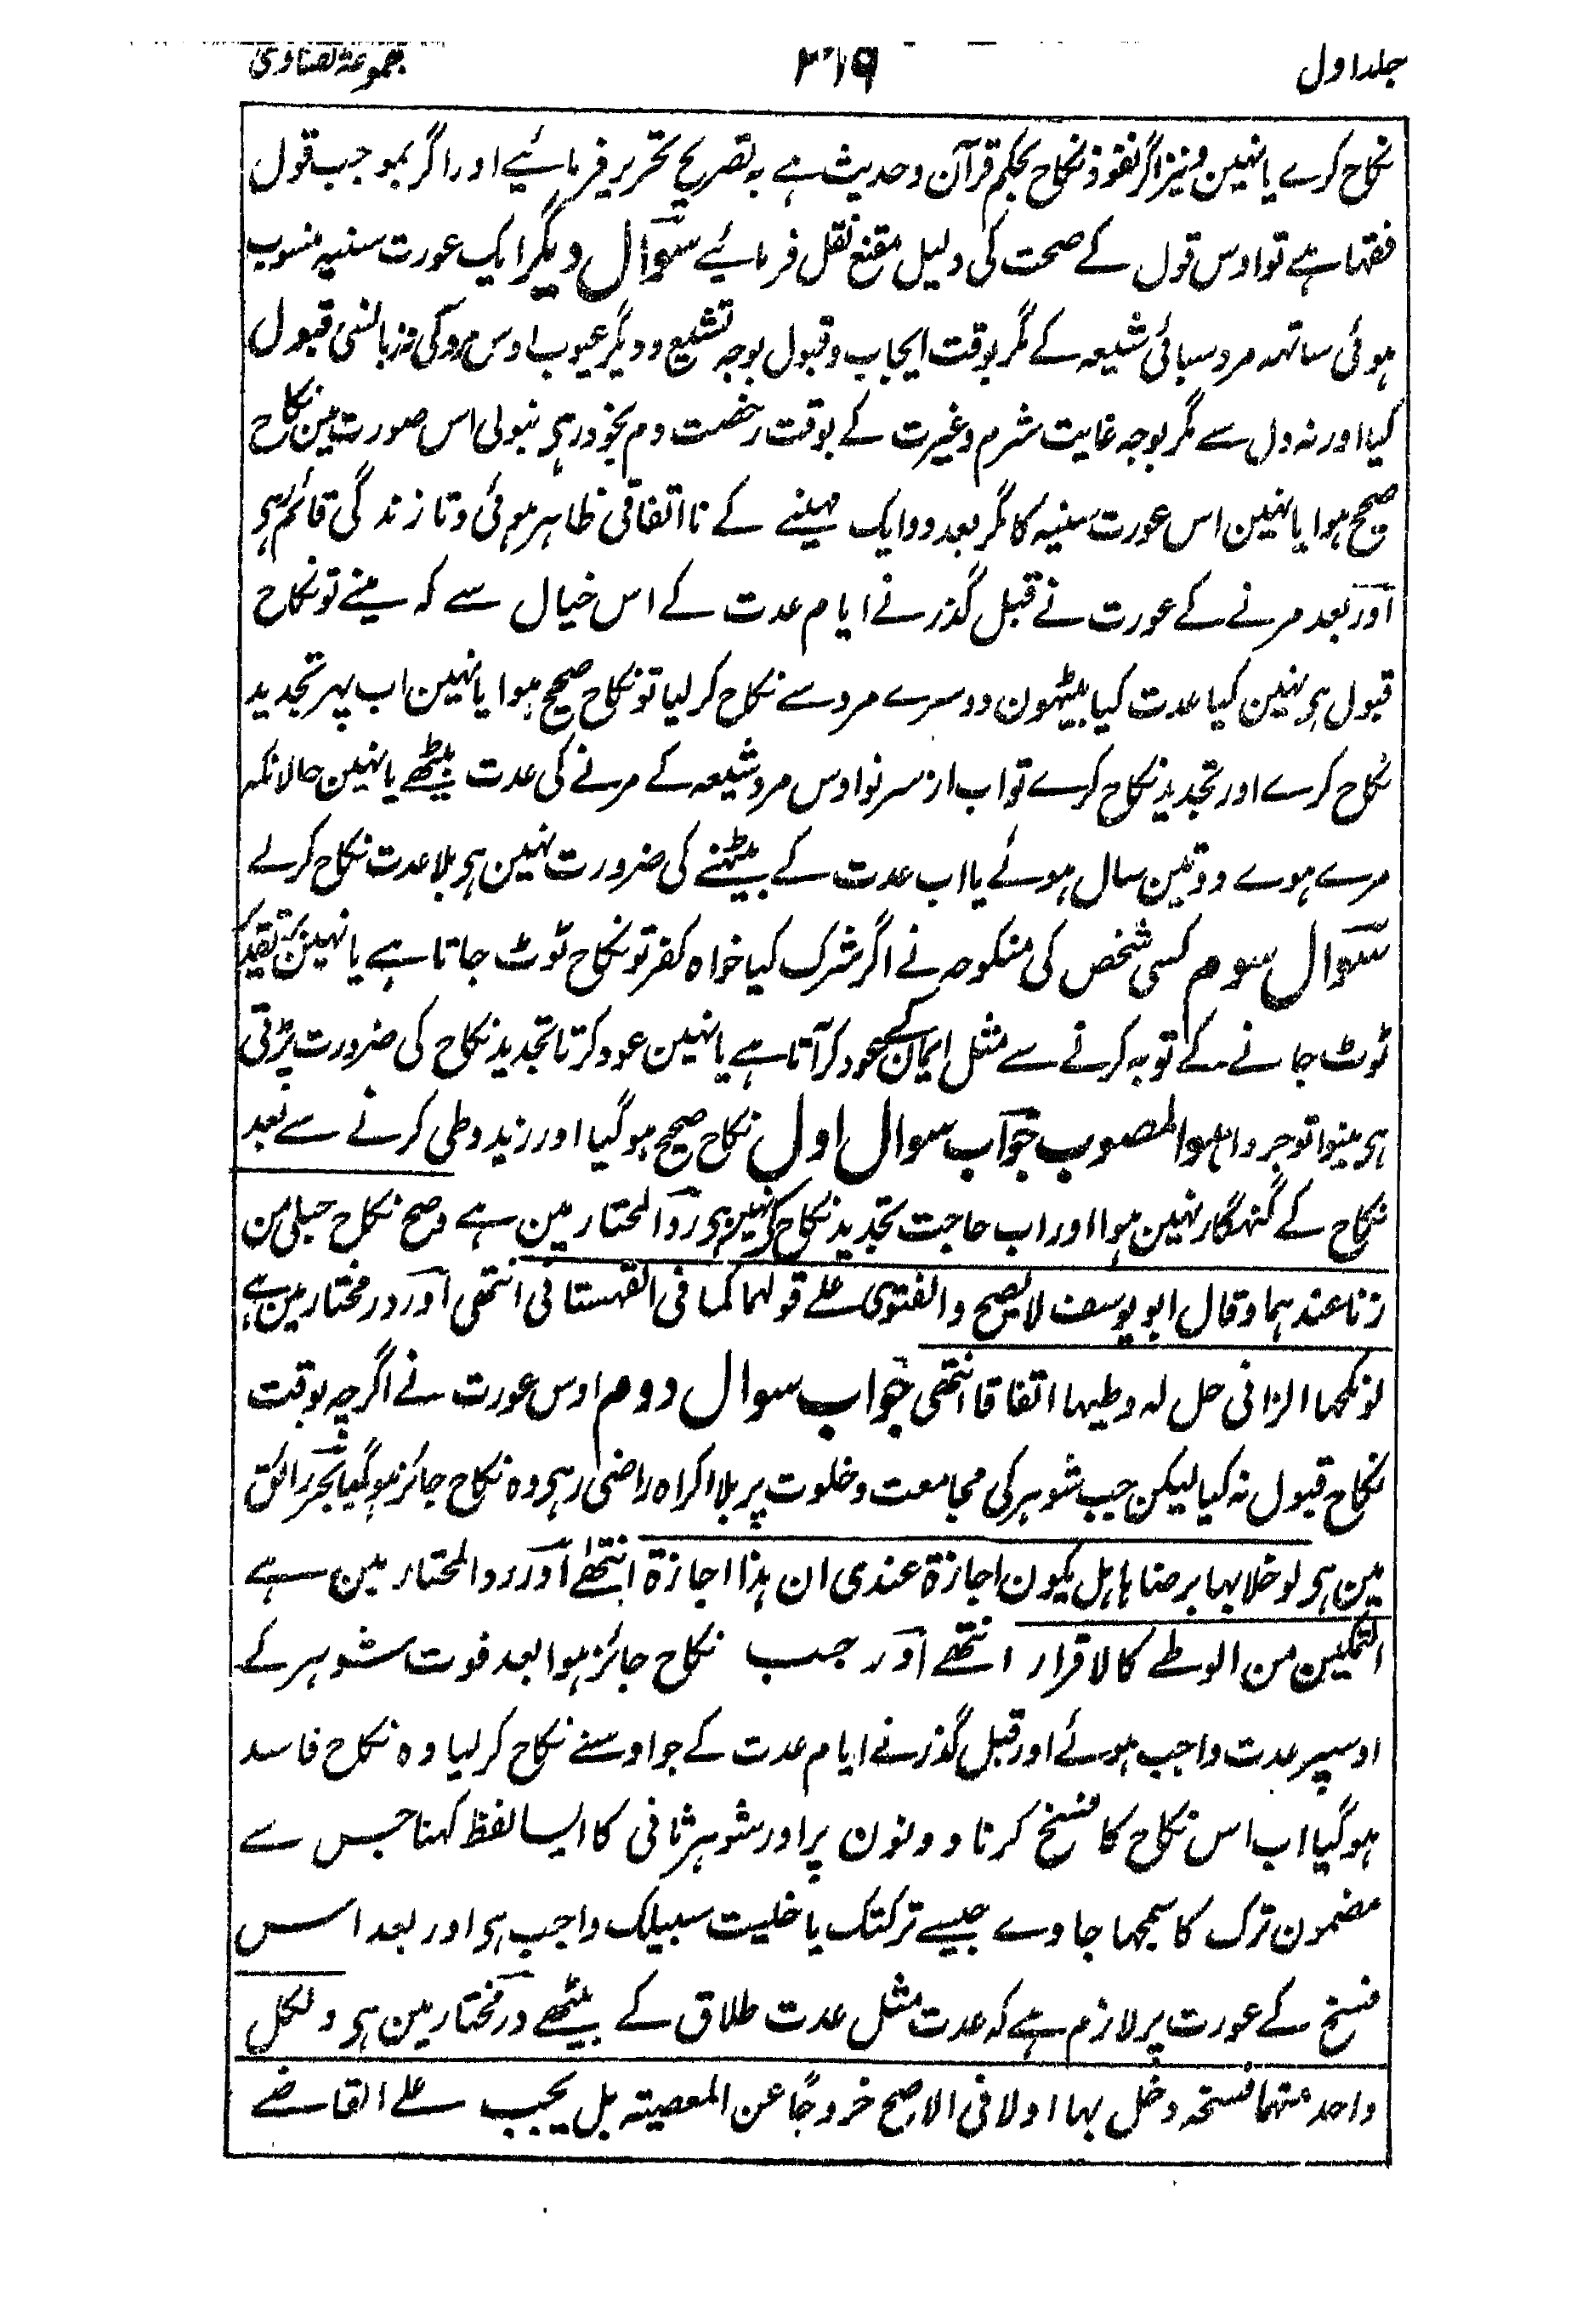 جلد اول ۳۱۹ مجموعۂ فتاوی
نکاح کرے یا نہین ونیز اگر نفوذ نکاح بحکم قرآن وحدیث ہے بہ تصریح تحریر فرمائیے اور اگر بموجب قول
فقہا ہے تو اوس قول کے صحت کی دلیل مقنع نقل فرمائیے سوال دیگر ایک عورت سنیہ منسوب
ہوئی ساتھہ مرد سبائی شیعہ کے مگر بوقت ایجاب وقبول بوجہ تشیع ودیگر عیوب اوس مرد کی نہ زبانسی قبول
کیا اور نہ دل سے مگر بوجہ غایت شرم وغیرت کے بوقت رخصت دم بخود رہی نبولی اس صورت مین نکاح
صحیح ہوا یا نہین اس عورت سنیہ کا مگر بعد دو ایک مہینے کے نااتفاقی ظاہر ہوئی وتا زندگی قائم رہی
اور بعد مرنے کے عورت نے قبل گذرنے ایام عدت کے اس خیال سے کہ مینے تو نکاح
قبول ہی نہین کیا عدت کیا بیٹھون دوسرے مرد سے نکاح کرلیا تو نکاح صحیح ہوا یا نہین اب پہر تجدید
نکاح کرے اور تجدید نکاح کرے تو اب از سر نو اوس مرد شیعہ کے مرنے کی عدت بیٹھے یا نہین حالانکہ
مرے ہوے دو تین سال ہوئے یا اب عدت کے بیٹھنے کی ضرورت نہین ہی بلا عدت نکاح کرلے
سوال سوم کسی شخص کی منکوحہ نے اگر شرک کیا خواہ کفر تو نکاح ٹوٹ جاتا ہے یا نہین بر تقدیر
ٹوٹ جانے کے توبہ کرنے سے مثل ایمان کے عود کر آتا ہے یا نہین عود کرتا تجدید نکاح کی ضرورت پڑتی
ہی بینوا توجروا ہو المصوب جواب سوال اول نکاح صحیح ہوگیا اور زید وطی کرنے سے بعد
نکاح کے گنہگار نہین ہوا اور اب حاجت تجدید نکاح کی نہین ہی رد المحتار مین ہے وصح نکاح حبلی من
زنا عندہما وقال ابو یوسف لا یصح والفتوی علے قولہما کما فی القہستانی انتہی اور در مختار مین ہے
لو نکحہا الزانی حل لہ وطیہا اتفاقا انتہی جواب سوال دوم اوس عورت نے اگرچہ بوقت
نکاح قبول نہ کیا لیکن جب شوہر کی مجامعت وخلوت پر بلا اکراہ راضی رہی وہ نکاح جائز ہوگیا بحر رائق
مین ہی لو خلا بہا برضاہا ہل یکون اجازۃ عندی ان ہذا اجازۃ انتہے اور رد المحتار مین ہے
التمکین من الوطے کالاقرار انتہے اور جب نکاح جائز ہوا بعد فوت شوہر کے
اوسپر عدت واجب ہوئے اور قبل گذرنے ایام عدت کے جو اوسنے نکاح کرلیا وہ نکاح فاسد
ہوگیا اب اس نکاح کا فسخ کرنا دونون پر اور شوہر ثانی کا ایسا لفظ کہنا جس سے
مضمون ترک کا سمجھا جاوے جیسے ترکتک یا خلیت سبیلک واجب ہی اور بعد اس
فسخ کے عورت پر لازم ہے کہ عدت مثل عدت طلاق کے بیٹھے در مختار مین ہی ولکل
واحد منہما فسخہ دخل بہا اولا فی الاصح خروجًا عن المعصیتہ بل یجب علے القاضے